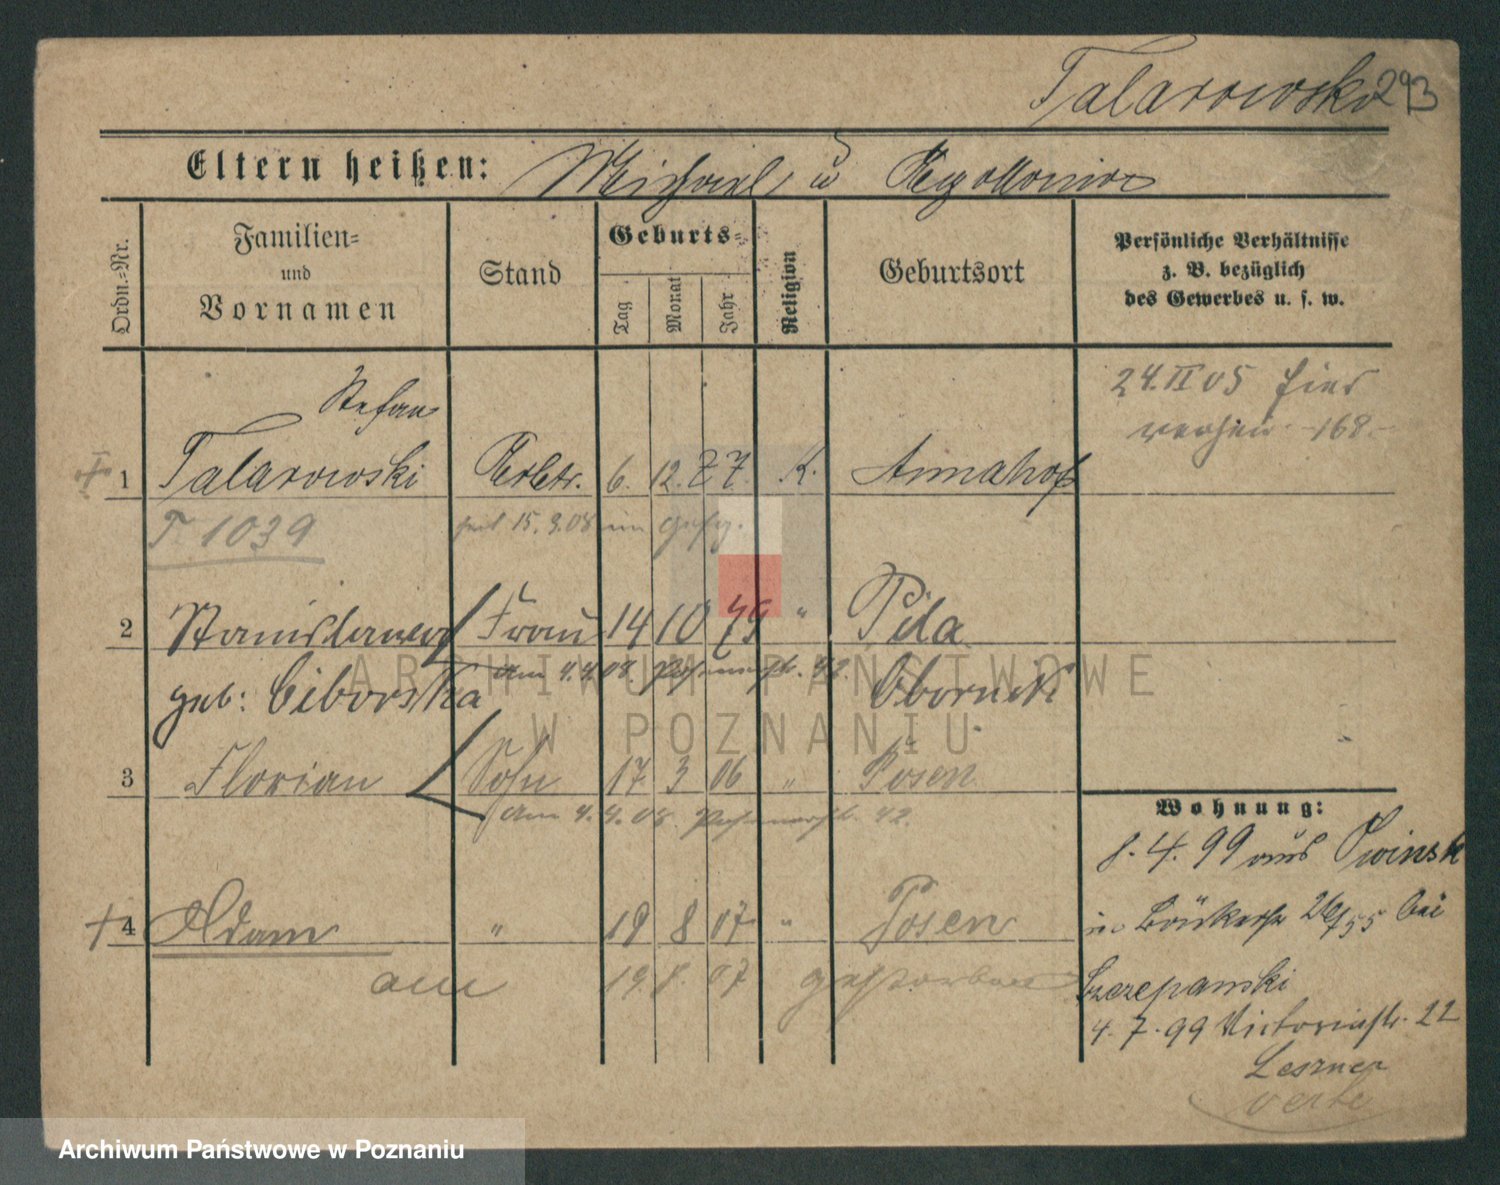 Talarowski 293
Eltern heißen: Michael u Apollonia
Ordn.=Nr.
Familien=
und
Vornamen
Stand
Geburts=
Tag
Monat
Jahr
Religion
Geburtsort
Persönliche Verhältnisse
z. B. bezüglich
des Gewerbes u. s. w.
24.II 05 hier
168.
Stefan
1 Talarowski Arbtr. 6. 12. 77. K. Annahof
T 1039 seit 15. 9. 08 im
2 Stanislawa Frau 14 10 79 " Pila
am 4.4.08. 42.
geb: Ciborska Obornik
3 Florian Sohn 17 3 06 " Posen
am 4.4.08. 42.
Wohnung:
8. 4. 99 aus Owinsk
+ 4 Adam " 19 8 07 " Posen
in 26/55 bei
am 19. 8. 07 gestorben
Szczepanski
4. 7. 99 Victoriastr. 22
verte
ARCHIWUM PAŃSTWOWE
W POZNANIU
Archiwum Państwowe w Poznaniu